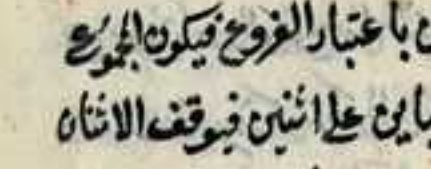 باعتبار الفروع فيكون المجموع
باين على اثنين فيوقف الاثنان